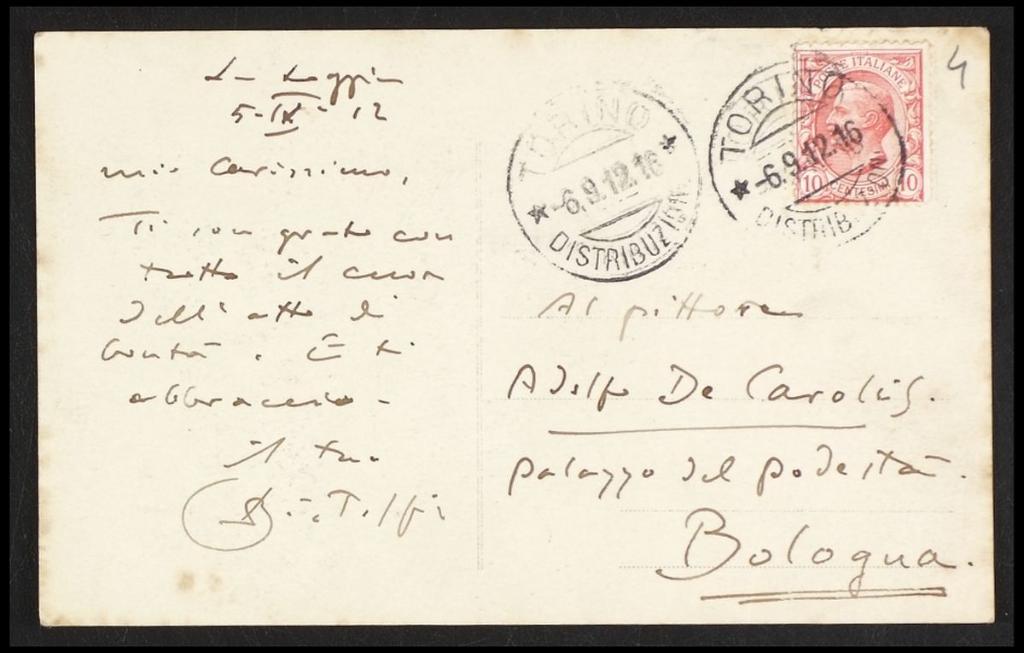 La Loggia
5-IX-12
mio carissimo,
Ti son grato con
tutto il cuore
dell'atto di
bontà. E ti
abbraccio-
il tuo
TORINO
-6.9.12.16
DISTRIBUZION
TORINO
-6.9.12.16
DISTRIB ION
POSTE ITALIANE
10 CENTESIMI 10
4
Al pittore
Adolfo De Carolis.
palazzo del podestà.
Bologna.